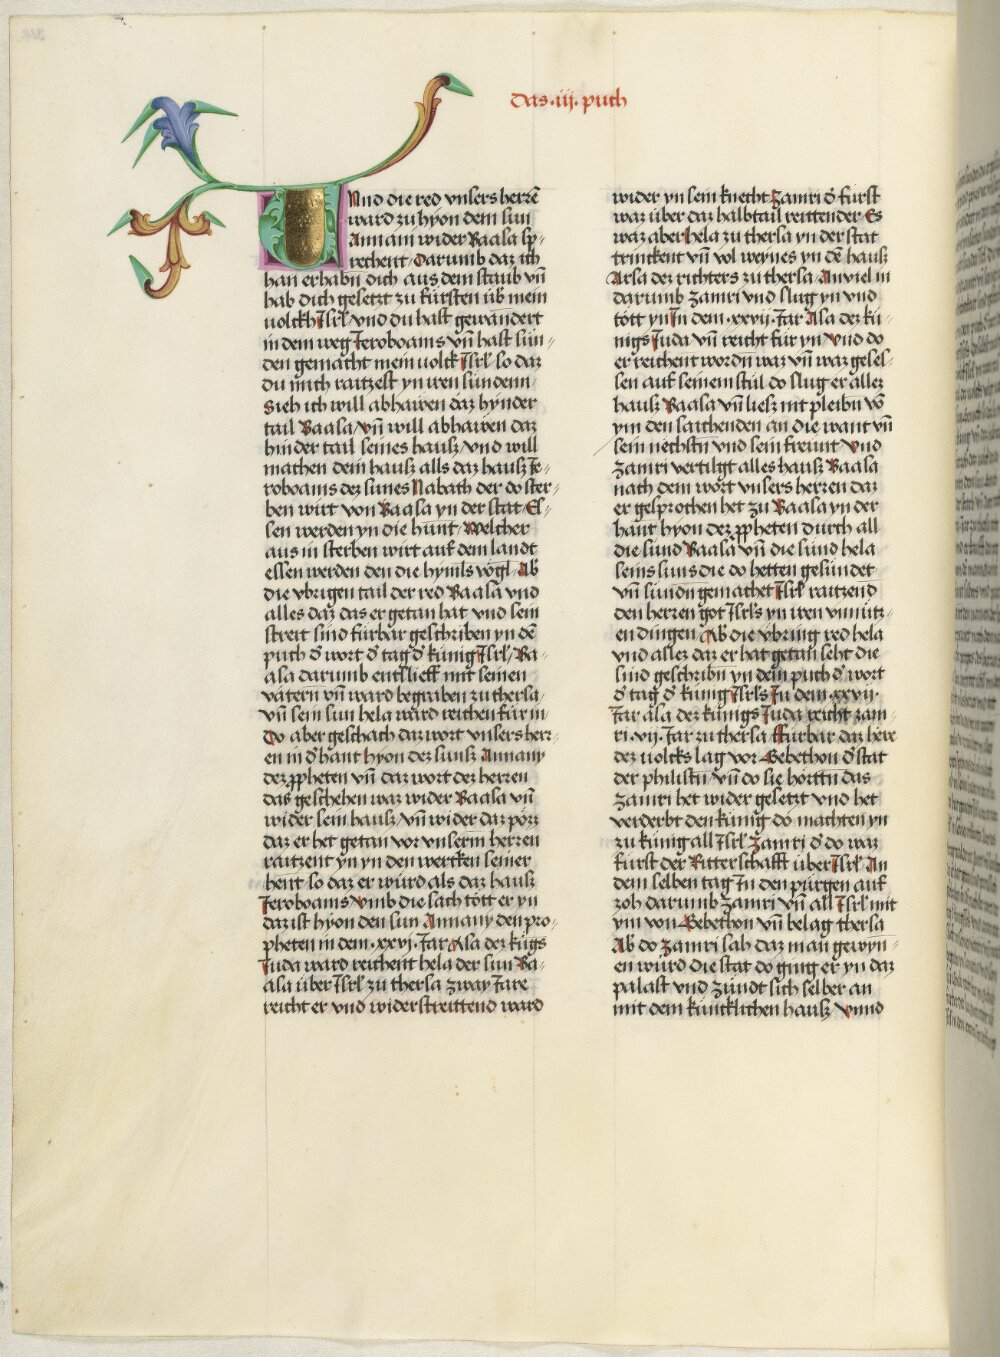 das·iij·puch
Und die red vnsers herrē
ward zu hyon dem sun
Annani wider Baasa sp-
rechent· Darumb daz ich
han erhabn̄ dich aus dem staub vn̄
hab dich gesetzt zu fürsten üb̄ mein
volckh Isrl̄ /vnd du hast gewandert
in dem weg Jeroboams vn̄ hast sün-
den gemacht mein volck Isrl̄ so daz
du mich raitzest yn iren sündenn·
Sieh ich will abhawen daz hynder
tail Baasa /vn̄ will abhawen daz
hinder tail seines hausz /vnd will
machen dein hausz alls daz hausz Je-
roboams dez sunes Nabath der do ster-
ben wirt von Baasa yn der stat· Es-
sen werden yn die hunt· Welcher
aus in sterben wirt auf dem landt
essen werden den die hym̄ls vögl· Ab
die vbrigen tail der red Baasa vnd
alles daz das er getan hat vnd sein
streit sind fürbar geschriben yn dē
puch d̄ wort d̄ tag d̄ künig Isrl̄ /Ba-
asa darumb entslieff mit seinen
vätern vn̄ ward begraben zu thersa·
vn̄ sein sun hela ward reichen für in
Do aber geschach daz wort vnsers herr-
en in d̄ hant hyon dez sunsz Annany
dez ꝓpheten vn̄ daz wort dez herren
das geschehen waz wider Baasa vn̄
wider sein hausz vn̄ wider daz pözz
daz er het getan vor vnserm herren
raitzent yn yn den wercken seiner
hent so daz er würd als daz hausz
Jeroboams· Vmb die sach tött er yn
daz ist hyon den sun Annany den pro-
pheten in dem ·xxvj· Jar Asa dez kügs
Juda ward reichent hela der sun Ba-
asa über Isrl̄ zu thersa zway Jare
reicht er vnd widerstreittend ward
wider yn sein knecht Zamri d̄ fürst
waz über daz halbtail reittender· Es
waz aber hela zu thersa yn der stat
trinckent vn̄ vol weynes yn dē hausz
Arsa dez richters zu thersa· Anviel in
darumb Zamri vnd slug yn vnd
tött yn In dem ·xxvij· Jar Asa dez kü-
nigs Juda vn̄ reicht für yn· Vnd do
er reichent wordn̄ waz vn̄ waz gesel-
sen auf seinem stül do slug er allez
hausz Baasa vn̄ liesz nit pleibn̄ vō
ym den saichenden an die want vn̄
sein nechstn̄ vnd sein freunt· Vnd
Zamri vertilgt alles hausz Baasa
nach dem wort vnsers herren daz
er gesprochen het zu Baasa yn der
hant hyon dez ꝓpheten durch all
die sünd Baasa vn̄ die sünd hela
seins suns die do hetten gesündet
vn̄ sündn̄ gemachet Isrl̄ raitzend
den herren got Isrl̄s yn iren vnnütz-
en dingen· Ab die vbring red hela
vnd allez daz er hat getan seht die
sind geschribn̄ yn dem puch d̄ wort
d̄ tag d̄ künig Isrl̄s In dem ·xxvij·
Jar asa dez künigs Juda reicht zam-
ri ·vij· Jar zu thersa fürbar daz here
dez volcks lag vor Gebethon d̄ stat
der philistn̄ vn̄ do sie hörttn̄ das
Zamri het wider gesetzt vnd het
verderbt den künig do machten yn
zu künig all Isrl̄ Zamri d̄ do waz
fürst der Ritterschafft über Isrl̄ An
dem selben tag In den pürgen auf
zoh darumb Zamri vn̄ all Isrl̄ mit
ym von Gebethon vn̄ belag thersa
Ab do Zamri sah daz man gewyn-
en würd die stat do ging er yn daz
palast vnd zündt sich selber an
mit dem küncklichen hausz vnnd